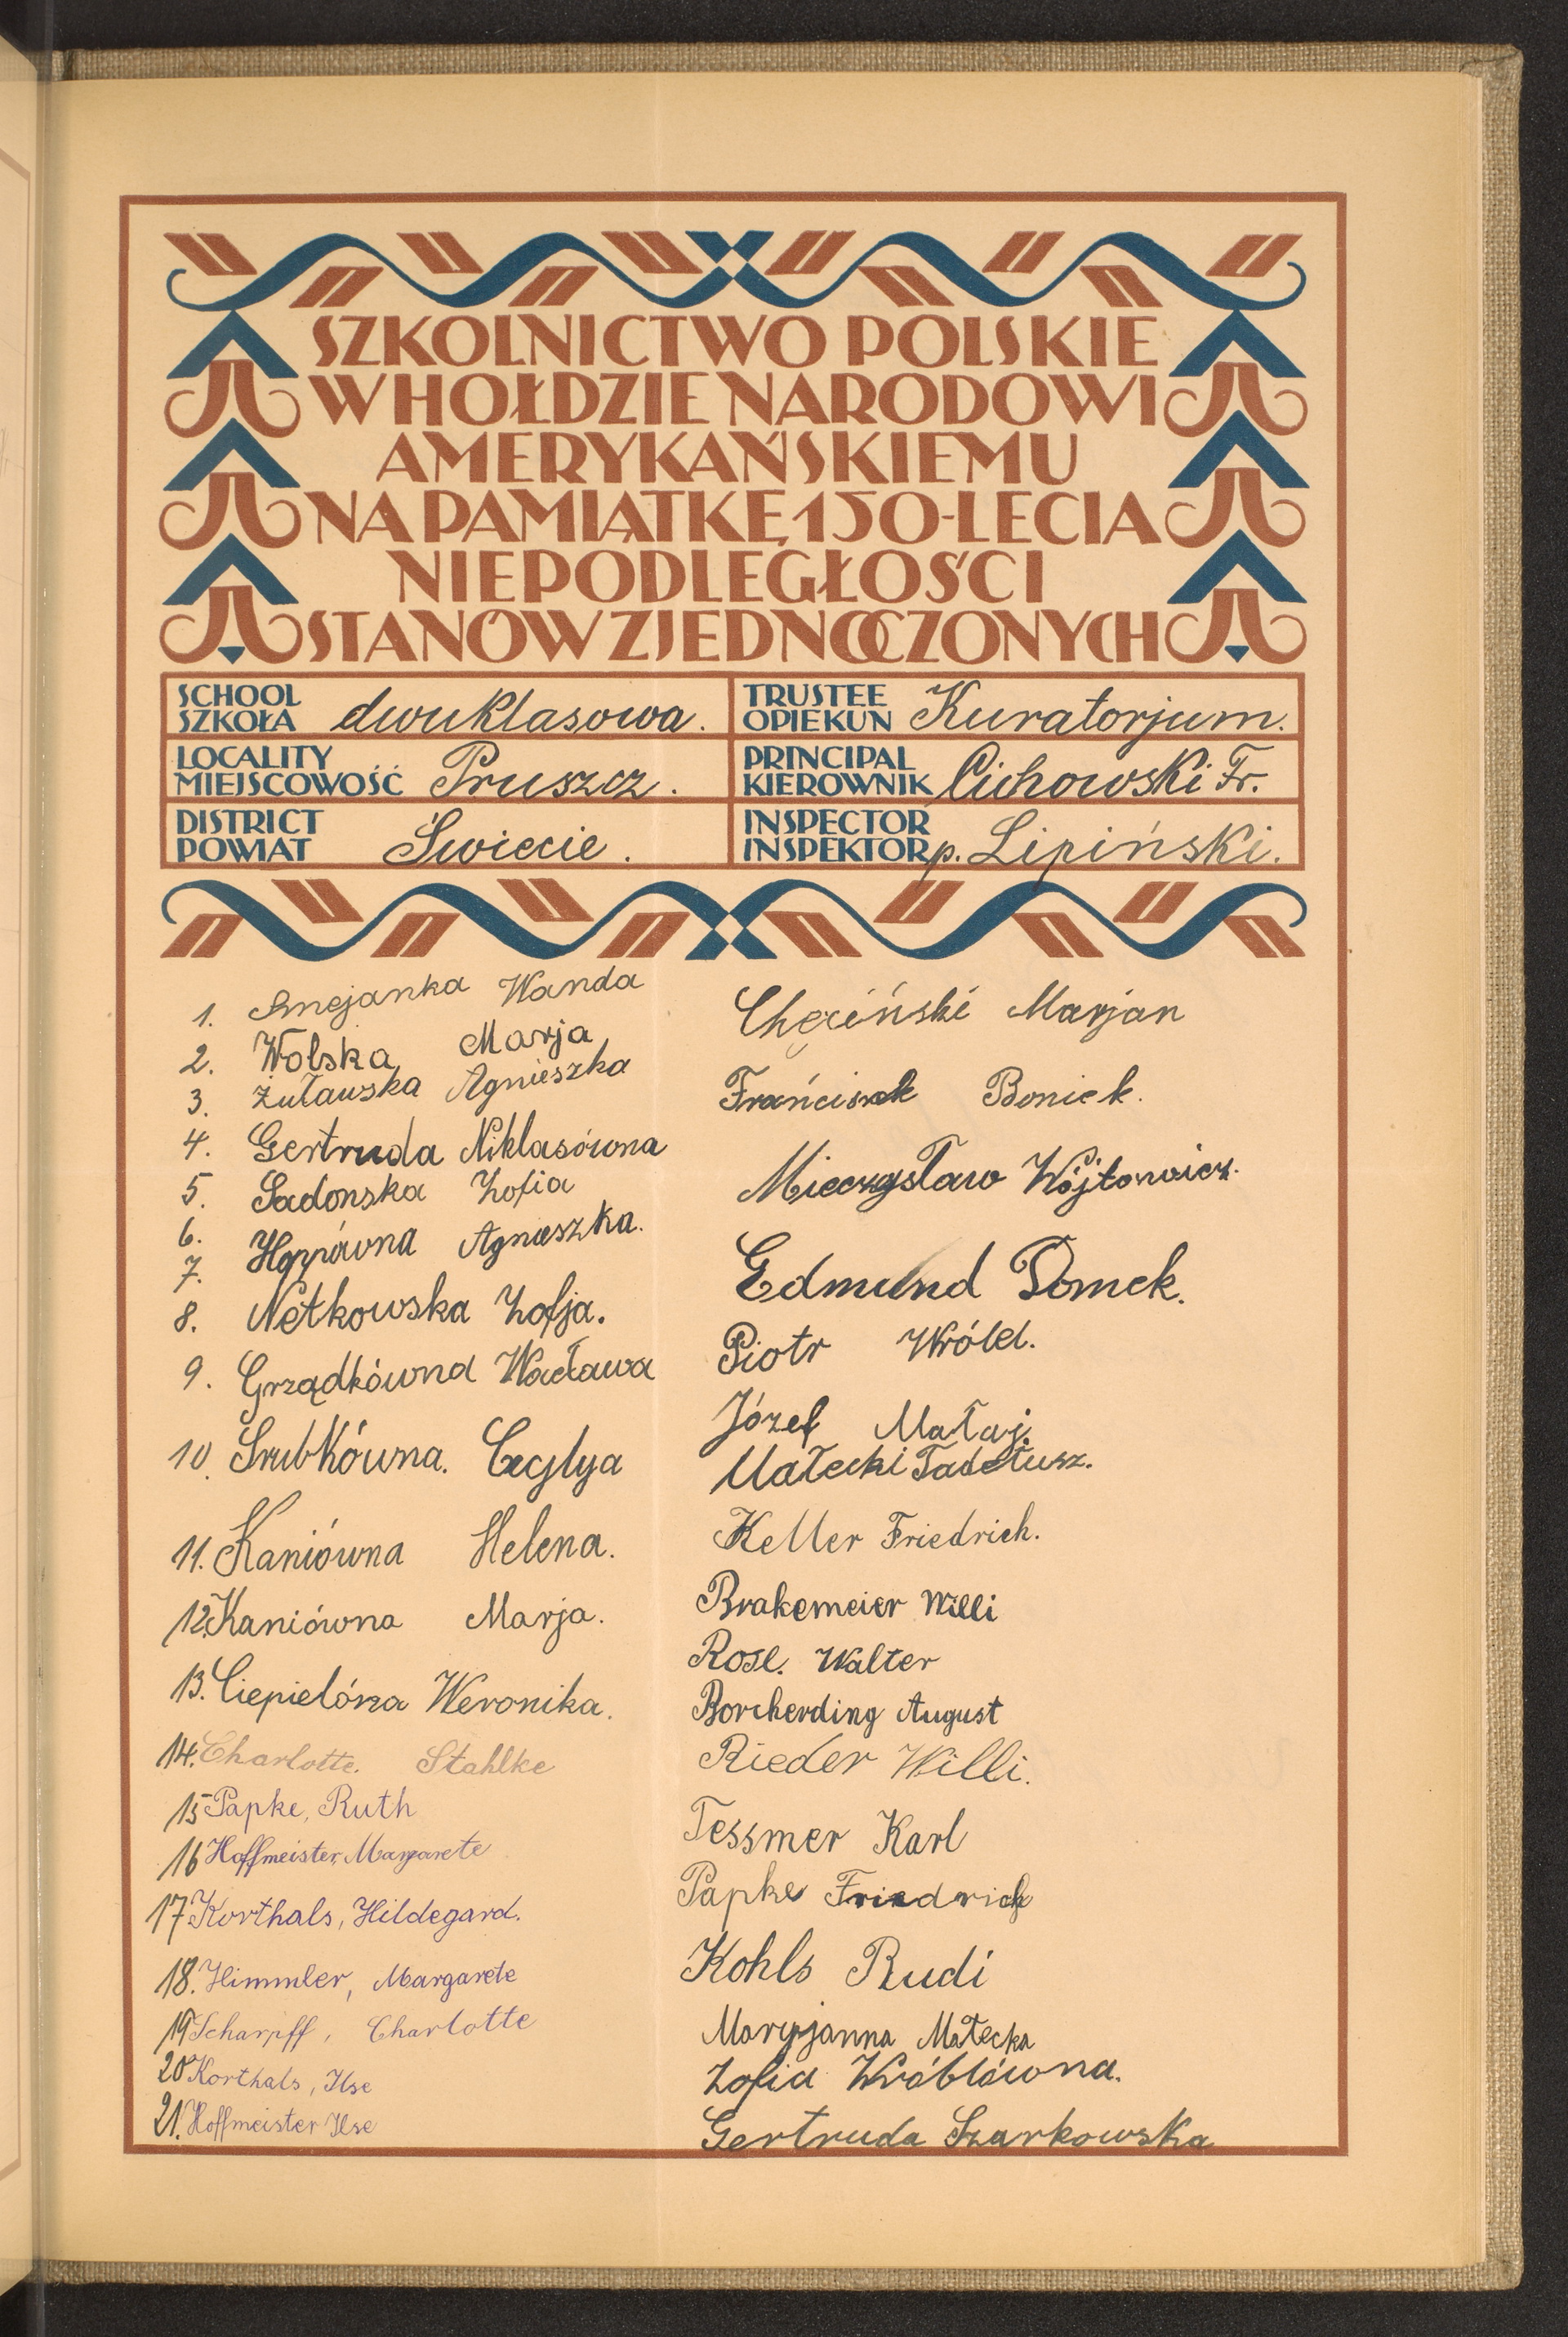 SZKOLNICTWO POLSKIE
W HOŁDZIE NARODOWI
AMERYKAŃSKIEMU
NA PAMIĄTKĘ 150-LECIA
NIEPODLEGŁOŚCI
STANÓW ZJEDNOCZONYCH
SCHOOL
SZKOŁA dwuklasowa.
TRUSTEE
OPIEKUN Kuratorjum.
LOCALITY
MIEJSCOWOŚĆ Pruszcz.
PRINCIPAL
KIEROWNIK Cichowski Fr.
DISTRICT
POWIAT Świecie.
INSPECTOR
INSPEKTOR p. Lipiński.
1. Smejanka Wanda
2. Wolska Marja
3. Żuławska Agnieszka
4. Gertruda Niklasówna
5. Sadonska Zofia
6.
7. Agnieszka.
8. Netkowska Zofja.
9. Grządkówna Wacława
10. Srubkówna.
11. Kaniówna Helena.
12. Kaniówna Marja.
13. Weronika.
14. Charlotte. Stahlke
15 Papke, Ruth
16 Hoffmeister, Margarete
17 Korthals, Hildegard.
18. Himmler, Margarete
19 Scharpff, Charlotte
20 Korthals, Ilse
21. Hoffmeister Ilse
Chęciński Marjan
Boniek.
Mieczysław Wójtowicz.
Edmund Domek.
Piotr Wróbel.
Józef Mataj.
Małecki Tadeusz.
Keller Friedrich.
Brakemeier Willi
Rose. Walter
Borcherding August
Rieder Willi.
Tessmer Karl
Papke Friedrich
Kohls Rudi
Małecka
Zofia Wróblówna.
Gertruda Szarkowska